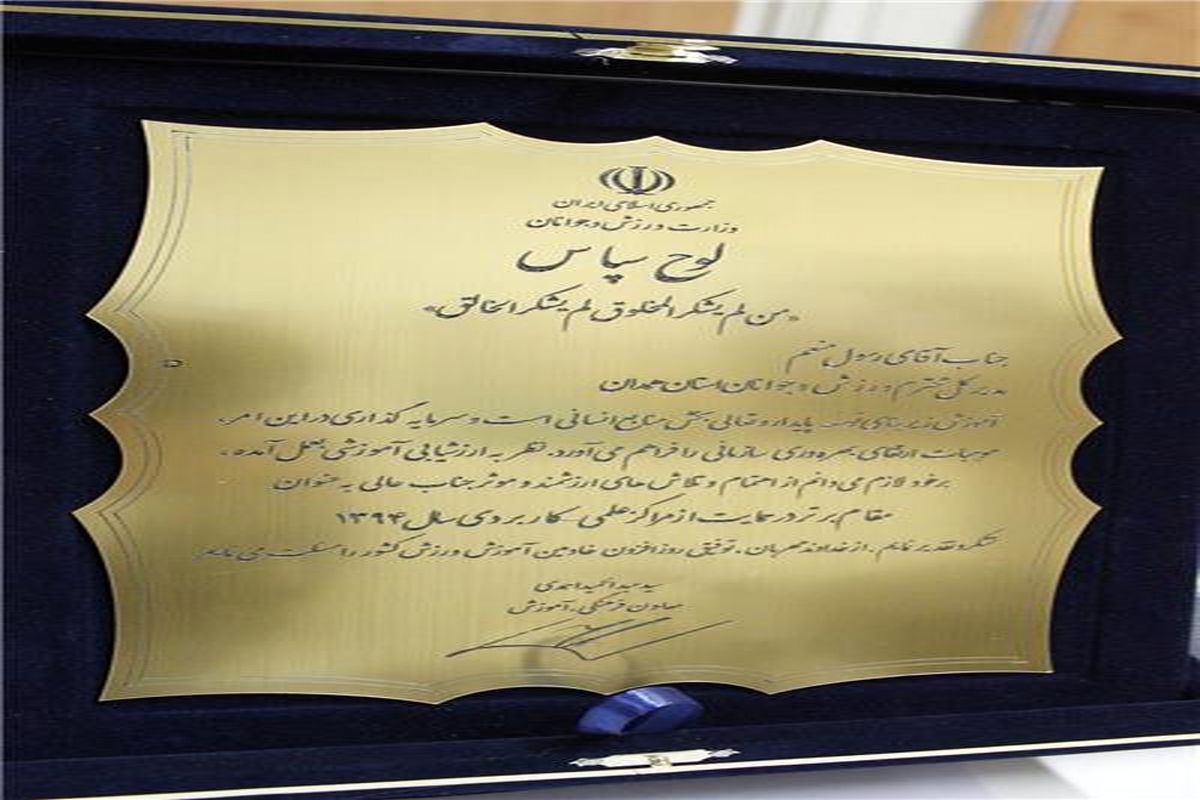 جمهوری اسلامی ایران
وزارت ورزش و جوانان
لوح سپاس
«من لم یشکر المخلوق لم یشکر الخالق»
جناب آقای رسول منعم
مدیر کل محترم ورزش و جوانان استان همدان
آموزش زیربنای توسعه پایدار و تعالی بخش منابع انسانی است و سرمایه گذاری در این امر،
موجبات ارتقای بهره وری سازمانی را فراهم می آورد. نظر به ارزشیابی آموزشی بعمل آمده،
بر خود لازم می دانم از اهتمام و تلاش های ارزشمند و موثر جناب عالی به عنوان
مقام برتر در حمایت از مراکز علمی کاربردی سال ۱۳۹۴
تشکر و تقدیر نمایم. از خداوند مهربان، توفیق روزافزون خادمین آموزش ورزش کشور را مسئلت می نمایم
سید عبدالحمید احمدی
معاون فرهنگی، آموزش